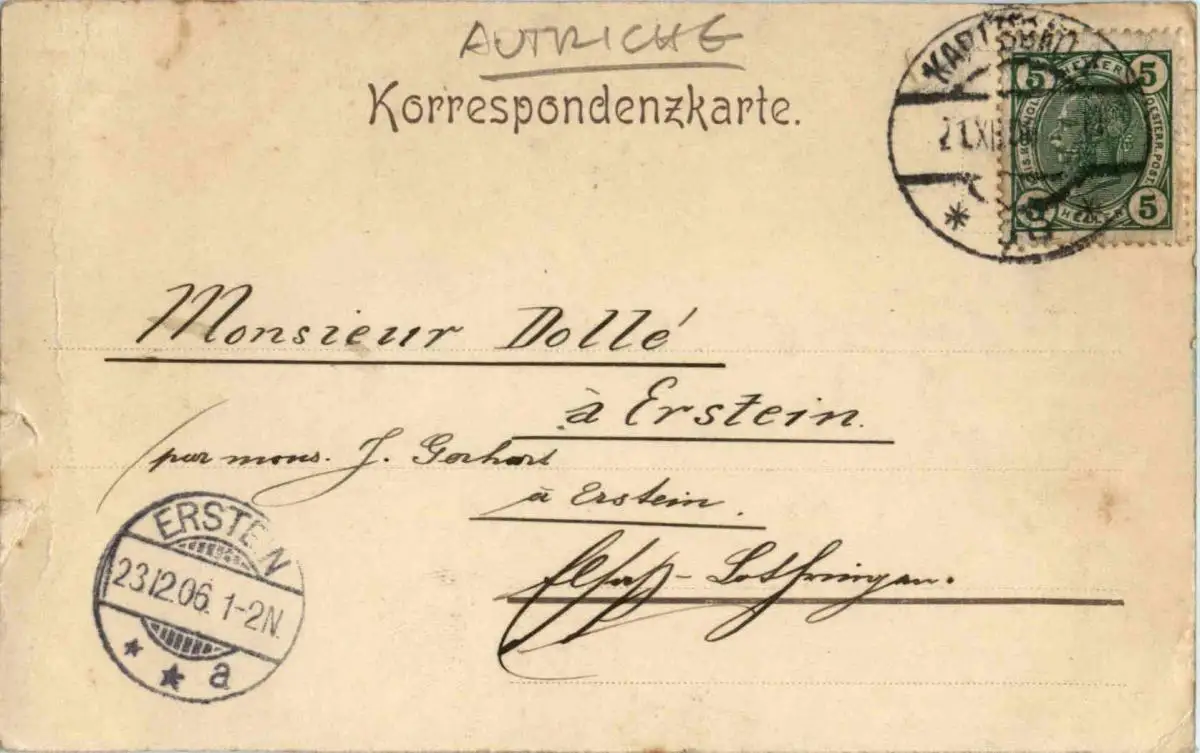 AUTRICHE
Korrespondenzkarte.
KARLSBAD
21.XII.
5 HELLER 5
KÖNIGL. OESTERR. POST.
5 HELLER 5
Monsieur Dollé
à Erstein.
par mons. J. Gerhart
à Erstein.
Elsaß-Lothringen.
ERSTEIN
23.12.06. 1-2N.
* * a